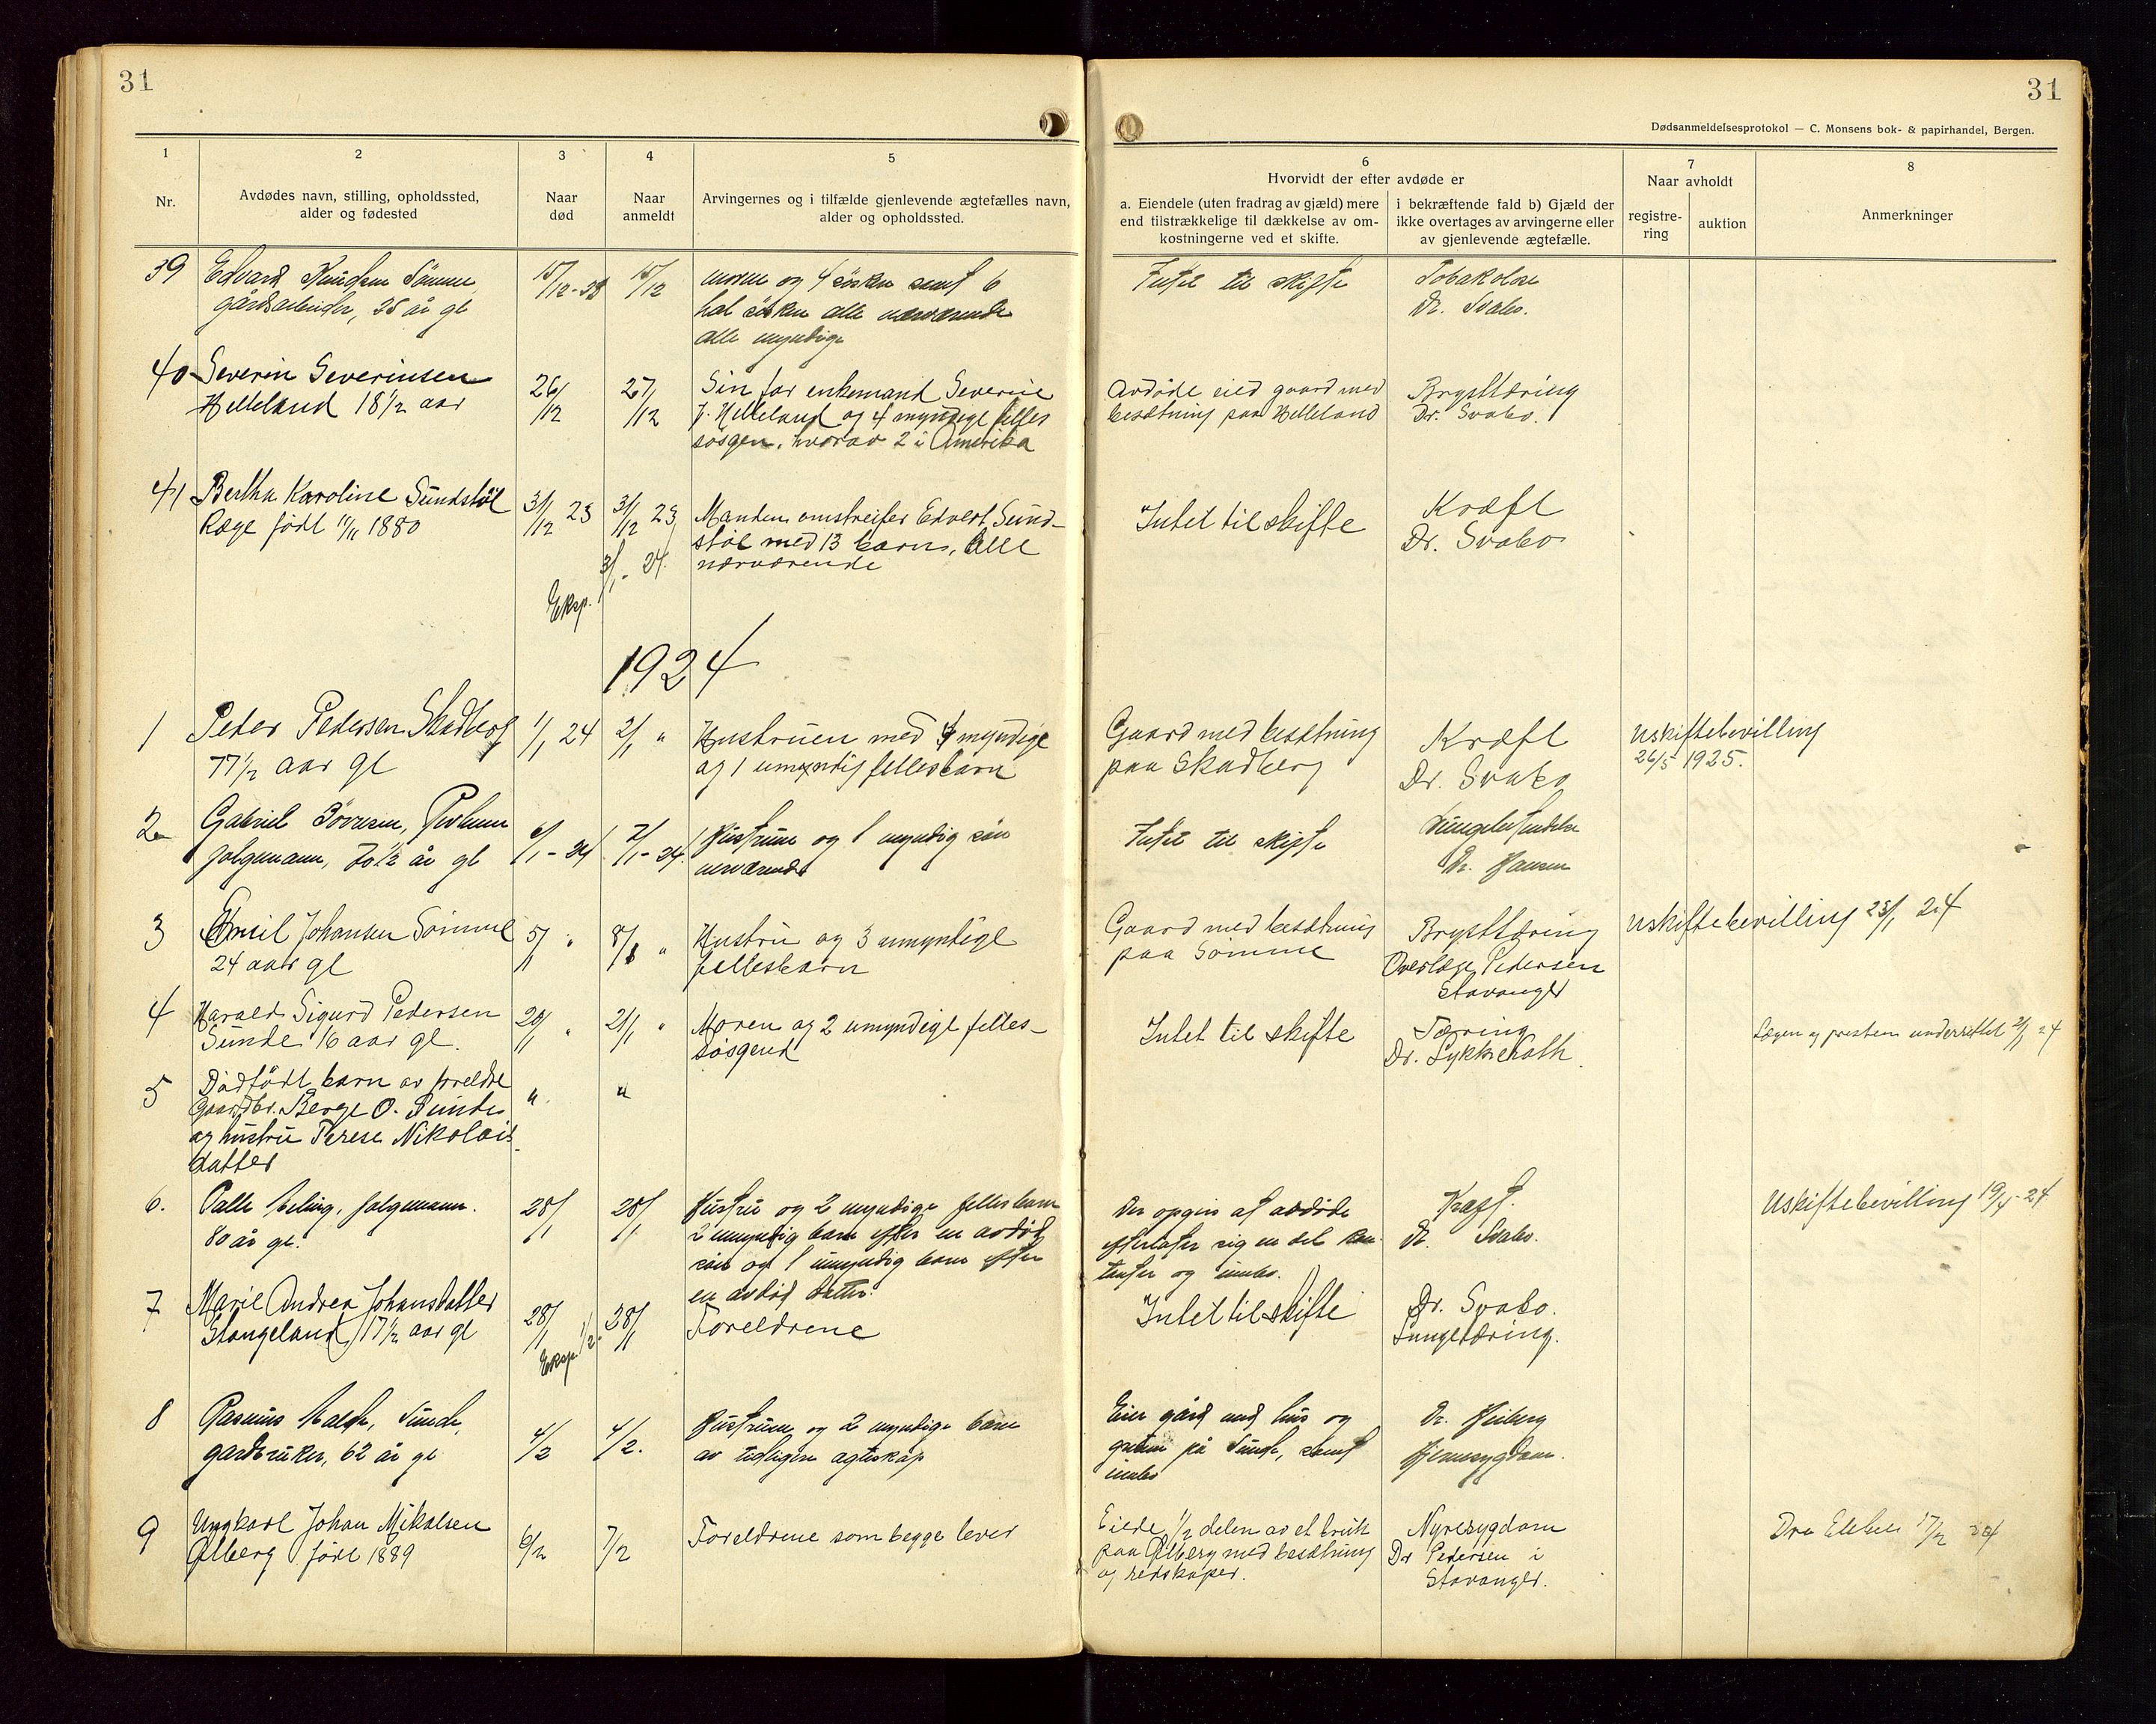 31
31
Dødsanmeldelsesprotokol — C. Monsens bok- & papirhandel, Bergen.
1
2
3
4
5
6
7
8
Nr.
Avdødes navn, stilling, opholdssted,
alder og fødested
Naar
død
Naar
anmeldt
Arvingernes og i tilfælde gjenlevende ægtefælles navn,
alder og opholdssted.
Hvorvidt der efter avdøde er
a. Eiendele (uten fradrag av gjæld) mere
end tilstrækkelige til dækkelse av om-
kostningerne ved et skifte.
i bekræftende fald b) Gjæld der
ikke overtages av arvingerne eller
av gjenlevende ægtefælle.
Naar avholdt
registre-
ring
auktion
Anmerkninger
39
Edvard Knudsen Sömme
gårdsarbeider, 35 år gl
15/12-23
15/12
moren og 4 sösken samt 6
hal sösken alle nærværende
alle myndige
Intet til skifte
Dr. Svabo.
40
Severin Severinsen
Helleland 18½ aar
26/12
27/12
Sin far enkemand Severin
J. Helleland og 4 myndige felles
søsgen, hvorav 2 i Amerika
Avdøde eied gaard med
besætning paa Helleland
Brysttæring
Dr. Svabo.
41
Bertha Karoline Sundstøl
Ræge født 11/11 1880
31/12 23
31/12 23
Manden omstreifer Edvert Sund-
støl med 13 barn, alle
nærværende
Intet til skifte
Kræft
Dr. Svabo
Eksp. 3/1 - 24.
1924
1
Peder Pedersen Skadberg
77½ aar gl
1/1 24
2/1 "
Hustruen med 4 myndige
og 1 umyndig fellesbarn
Gaard med besætning
paa Skadberg
Kræft
Dr. Svabo
Uskiftebevilling
26/5 1925.
2
Gabriel
folgemann, 70½ år gl
6/1 - 24
7/1 - 24.
Hustruen og 1 myndig sön
nærværende
Intet til skifte
Dr. Hansen
3
Emil Johansen Sømme
24 aar gl
5/1 "
8/1 "
Hustru og 3 umyndige
fellesbarn
Gaard med besætning
paa Sømme
Brysttæring
Overlæge Pedersen
Stavanger
Uskiftebevilling 23/1 24
4
Harald Sigurd Pedersen
Sunde 16 aar gl.
20/1 "
21/1 "
Moren og 2 umyndige felles-
søsgend
Intet til skifte
Tæring
Dr. Lykke Koth.
Lægen og presten underrettet 21/1 24
5
Dødfødt barn av foreldre
gaardbr. Berge O. Sunde
og hustru Terese Nikolais
datter
"
"
6.
Palle Meling, folgemann.
80 år gl.
28/1
28/1
Hustru og 2 myndige felles barn
2 umyndig barn efter en avdöd
sön og 1 umyndig barn efter
en avdöd datter.
Der opgis at avdöde
efterlater sig en del kon-
tanter og inbo.
Kræft.
Dr. Svabo.
Uskiftebevilling 19/4 - 24
7
Marie Andrea Johansdatter
Stangeland, 17½ aar gl
28/1
28/1
Foreldrene
Intet til skifte
Dr. Svabo.
Lungetæring.
Eksp. 1/2.
8
Rasmus Malde, Sunde,
gardbruker, 62 år gl
4/2
4/2.
Hustruen og 2 myndige barn
av tidligere ægteskap
Eier gård med hus og
på Sunde, samt
inbo
Dr. Heiberg
9
Ungkarl Johan Mikalsen
Ølberg født 1889
6/2
7/2
Foreldrene som begge lever
Eiede 1/2 delen av et bruk
paa Ølberg med besætning
og redskaper.
Nyresygdom
Dr Pedersen i
Stavanger.
17/2 24